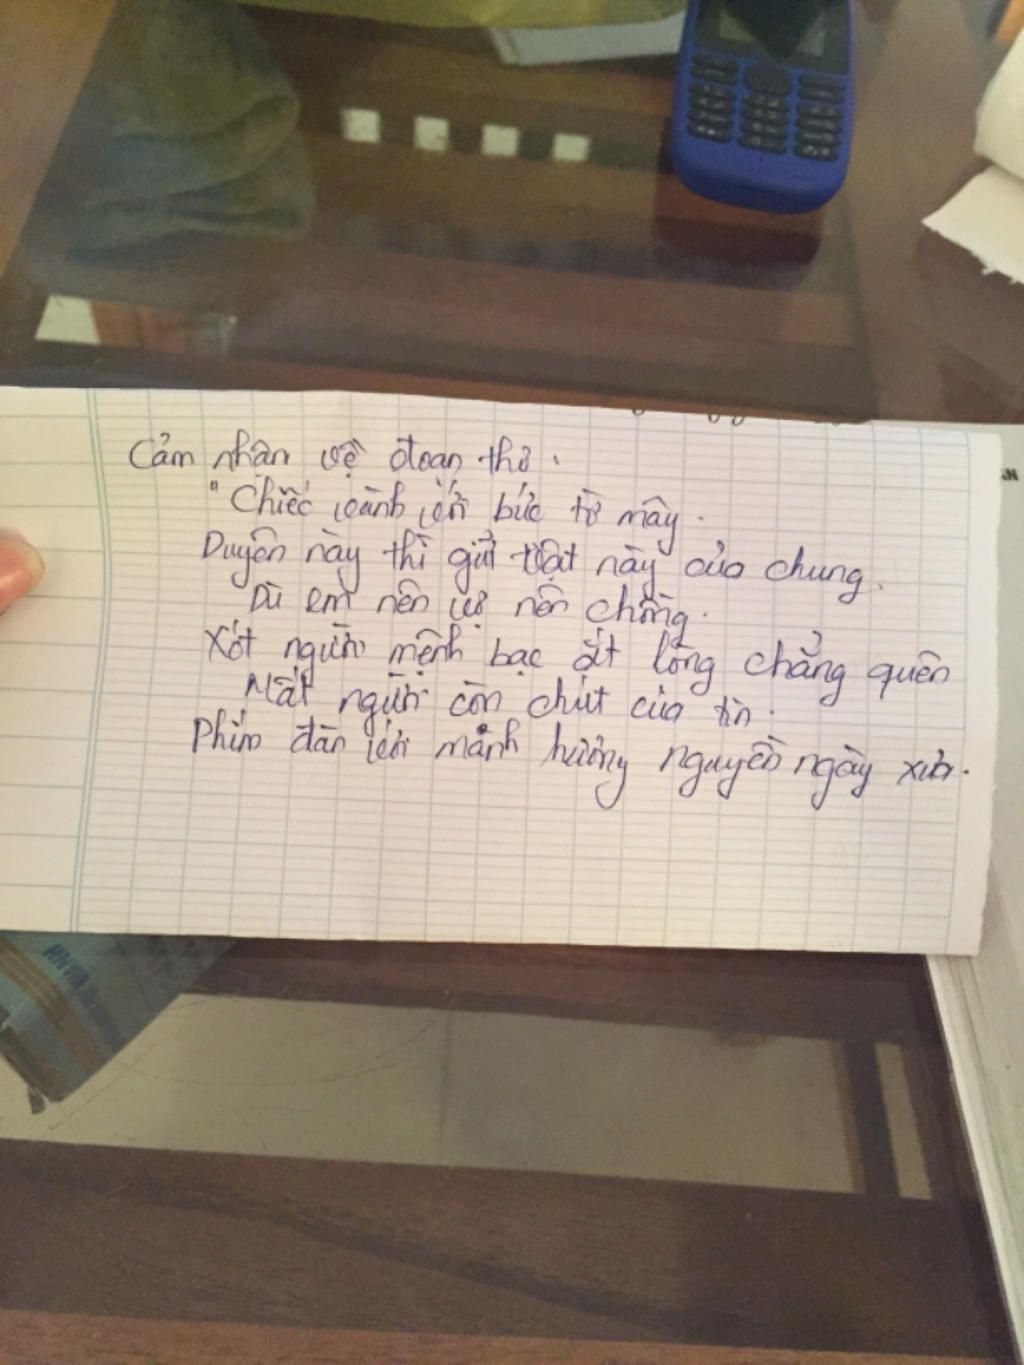 Cảm nhận về đoạn thơ.
"Chiếc vành với bức tờ mây.
Duyên này thì giữ vật này của chung.
Dù em nên vợ nên chồng.
Xót người mệnh bạc ắt lòng chẳng quên
Mất người còn chút của tin.
Phím đàn với mảnh hương nguyền ngày xưa.